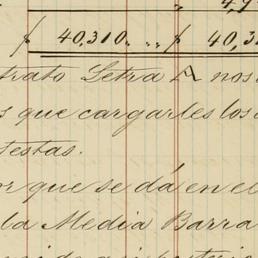 $ 40,310. .. $ 40,3
trato Letra A nos
s que cargarles los
estas.
or que se dá en el
la Media Barra